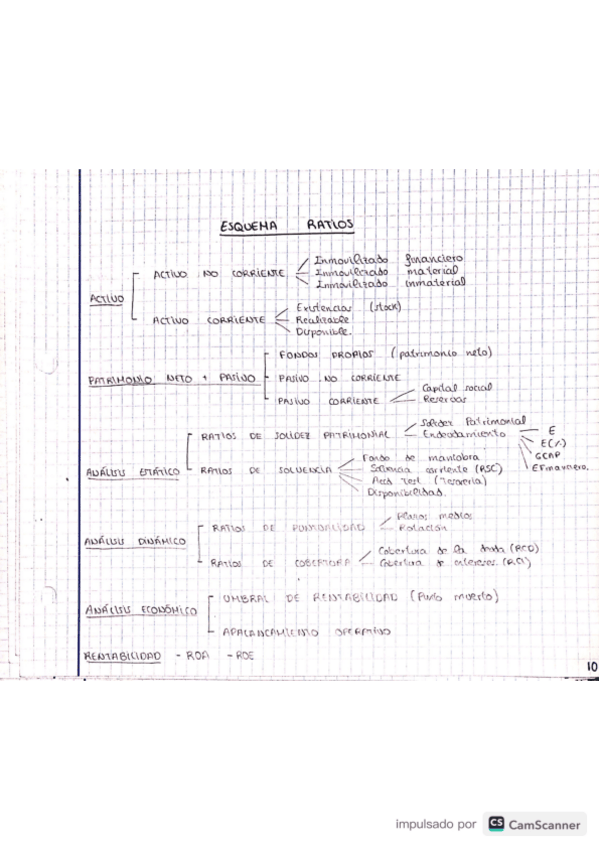 ESQUEMA RATIOS
ACTIVO
ACTIVO NO CORRIENTE
Inmovilizado financiero
Inmovilizado material
Inmovilizado inmaterial
ACTIVO CORRIENTE
Existencias (stock)
Realizable
Disponible.
PATRIMONIO NETO + PASIVO
FONDOS PROPIOS (patrimonio neto)
PASIVO NO CORRIENTE
PASIVO CORRIENTE
Capital social
Reservas
ANÁLISIS ESTÁTICO
RATIOS DE SOLIDEZ PATRIMONIAL
Solidez Patrimonial
Endeudamiento
E
E(%)
GCAP
RATIOS DE SOLVENCIA
Fondo de maniobra
Solvencia corriente (RSC)
Acid Test (Tesorería)
Disponibilidad.
ANÁLISIS DINÁMICO
RATIOS DE PUNTUALIDAD
Plazos medios
Rotación
RATIOS DE COBERTURA
Cobertura de la deuda (RCD)
Cobertura de intereses (RCI)
ANÁLISIS ECONÓMICO
UMBRAL DE RENTABILIDAD (Punto muerto)
APALANCAMIENTO OPERATIVO
RENTABILIDAD - ROA - ROE
10
impulsado por CS CamScanner